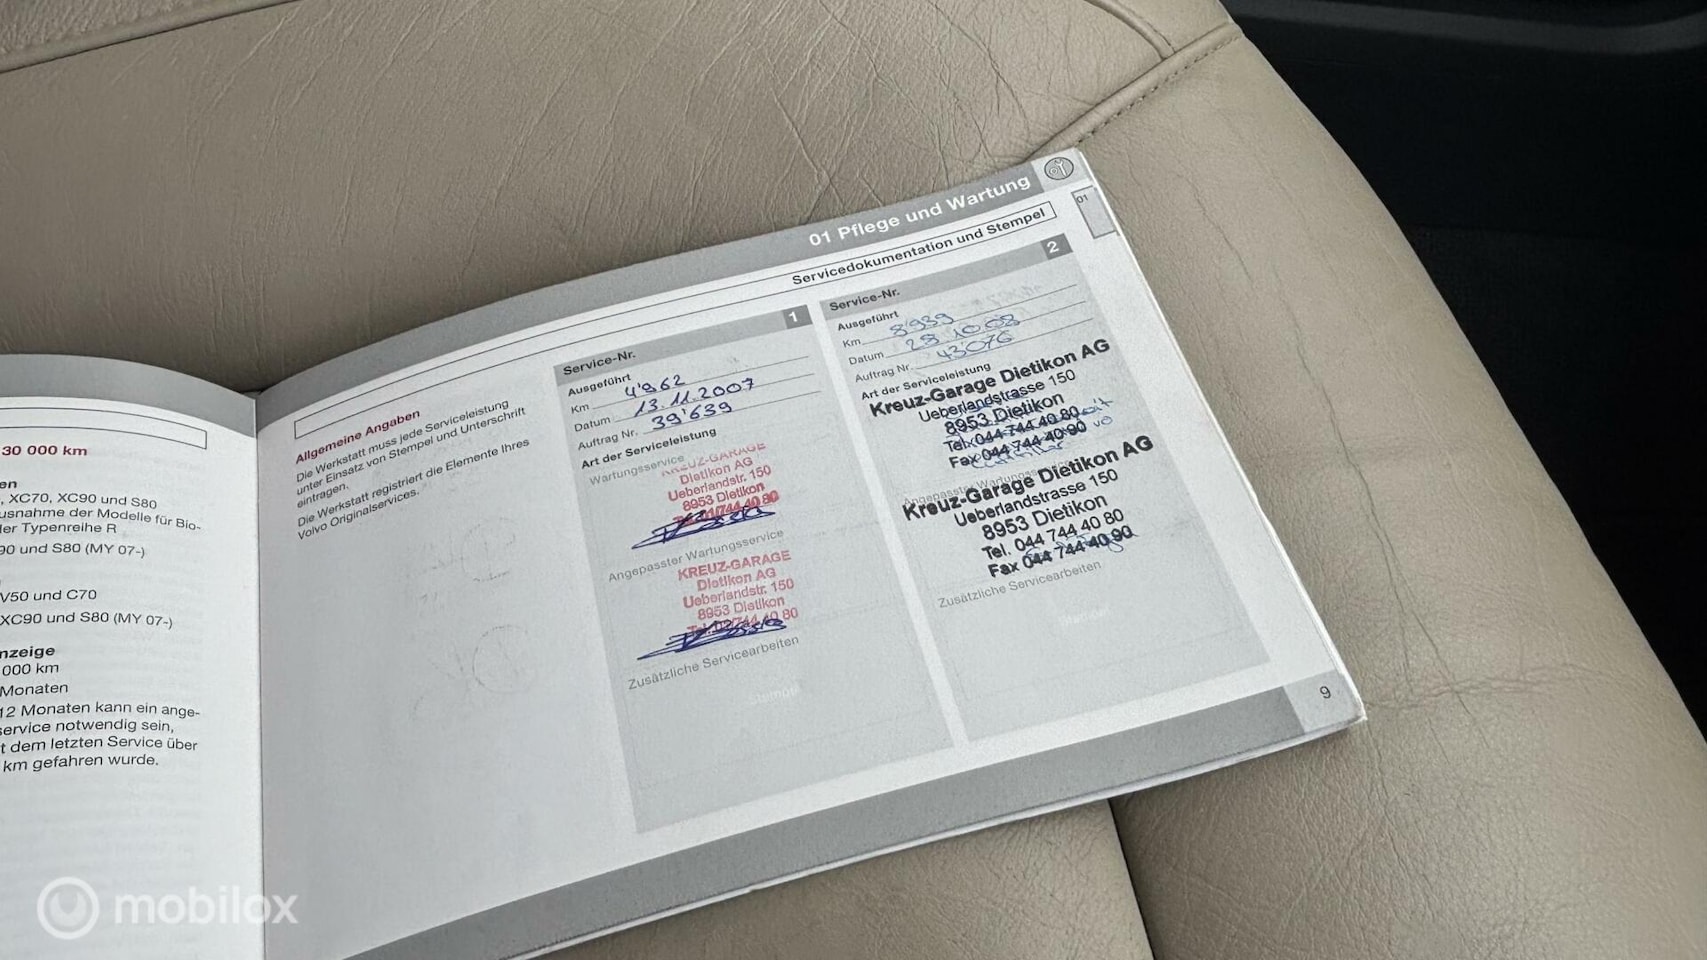 30 000 km
, XC70, XC90 und S80
usnahme der Modelle für Bio-
der Typenreihe R
90 und S80 (MY 07-)
V50 und C70
XC90 und S80 (MY 07-)
nzeige
000 km
Monaten
12 Monaten kann ein ange-
service notwendig sein,
t dem letzten Service über
km gefahren wurde.
01 Pflege und Wartung
01
Servicedokumentation und Stempel
Allgemeine Angaben
Die Werkstatt muss jede Serviceleistung
unter Einsatz von Stempel und Unterschrift
eintragen.
Die Werkstatt registriert die Elemente Ihres
Volvo Originalservices.
Service-Nr. 1
Ausgeführt
Km 4'962
Datum 13.11.2007
Auftrag Nr. 39'639
Art der Serviceleistung
Wartungsservice
KREUZ-GARAGE
Dietikon AG
Ueberlandstr. 150
8953 Dietikon
Tel. 01/744 40 80
Angepasster Wartungsservice
KREUZ-GARAGE
Dietikon AG
Ueberlandstr. 150
8953 Dietikon
Tel. 01/744 40 80
Zusätzliche Servicearbeiten
Stempel
Service-Nr. 2
Ausgeführt
Km 8'939
Datum 28.10.08
Auftrag Nr. 43'076
Art der Serviceleistung
Kreuz-Garage Dietikon AG
Ueberlandstrasse 150
8953 Dietikon
Tel. 044 744 40 80
Fax 044 744 40 90
Angepasster Wartungsservice
Kreuz-Garage Dietikon AG
Ueberlandstrasse 150
8953 Dietikon
Tel. 044 744 40 80
Fax 044 744 40 90
Zusätzliche Servicearbeiten
Stempel
9
mobilox